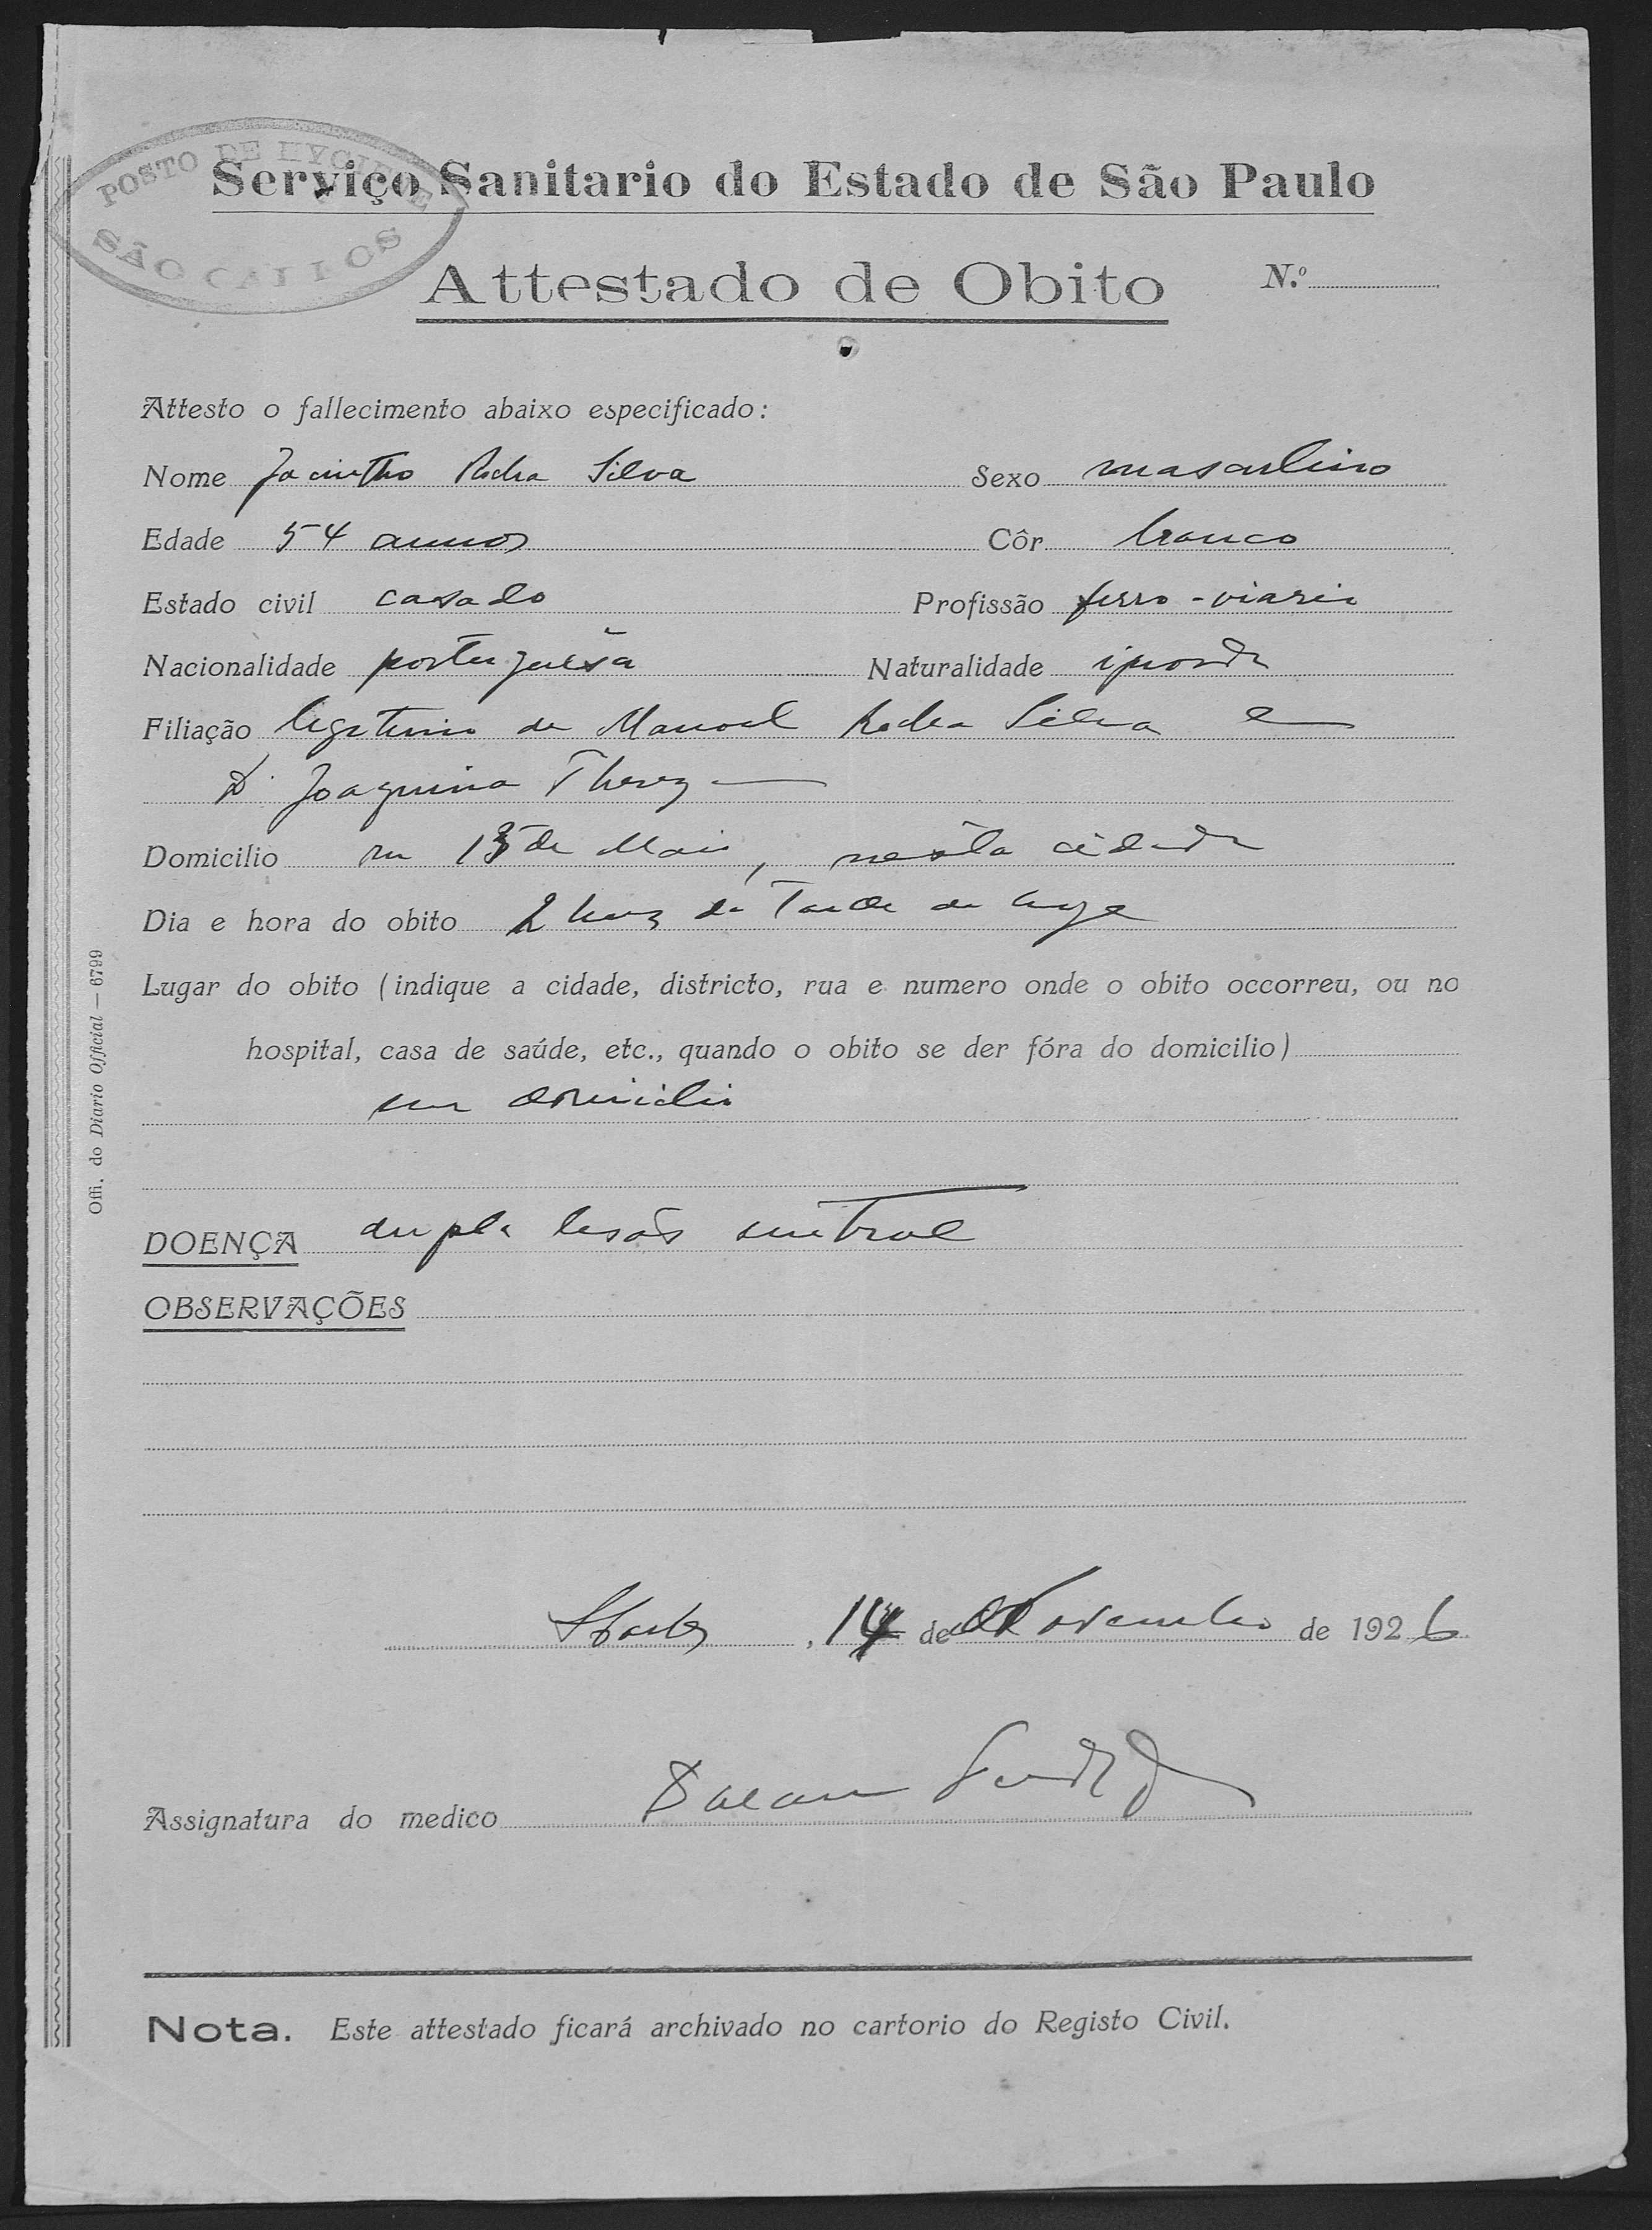 POSTO DE HYGIENE
SÃO CARLOS
Serviço Sanitario do Estado de São Paulo
Attestado de Obito N.º
Attesto o fallecimento abaixo especificado:
Nome Jacintho Rocha Silva Sexo masculino
Edade 54 annos Côr branco
Estado civil casado Profissão ferro-viario
Nacionalidade portuguêsa Naturalidade ignorada
Filiação legitimo de Manoel Rocha Silva e
D. Joaquina Thereza
Domicilio rua 13 de Maio, nesta cidade
Dia e hora do obito 2 horas da Tarde de hoje
Lugar do obito (indique a cidade, districto, rua e numero onde o obito occorreu, ou no
hospital, casa de saúde, etc., quando o obito se der fóra do domicilio)
seu domicilio
DOENÇA dupla lesão mitral
OBSERVAÇÕES
S. Carlos, 14 de Novembro de 1926
Assignatura do medico
Nota. Este attestado ficará archivado no cartorio do Registo Civil.
Offi. do Diario Official — 6799